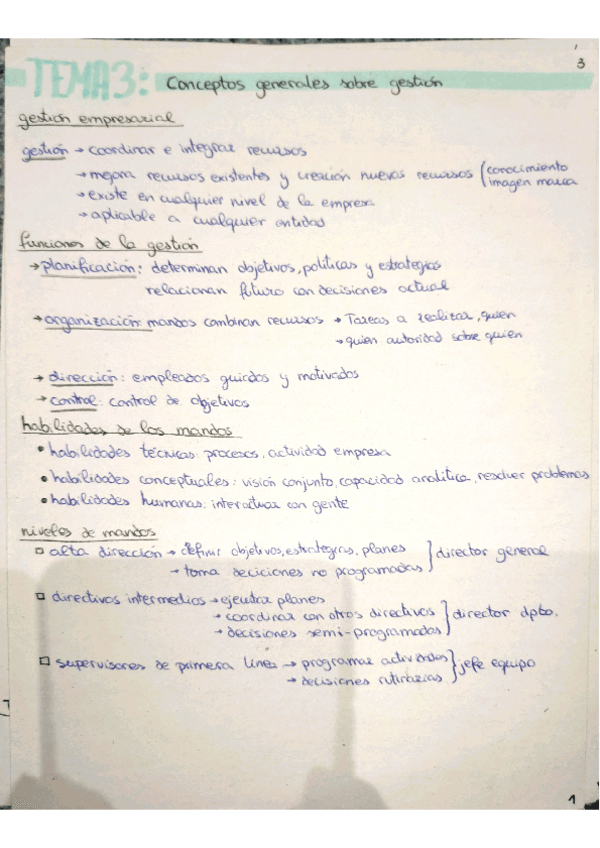 3
TEMA 3: Conceptos generales sobre gestión
gestión empresarial
gestión → coordinar e integrar recursos
→ mejora recursos existentes y creación nuevos recursos (conocimiento
imagen marca
→ existe en cualquier nivel de la empresa
→ aplicable a cualquier entidad
funciones de la gestión
→ planificación: determinan objetivos, políticas y estrategias
relacionan futuro con decisiones actual
→ organización: mandos combinan recursos → Tareas a realizar, quien
→ quien autoridad sobre quien
→ dirección: empleados guiados y motivados
→ control: control de objetivos
habilidades de los mandos
• habilidades técnicas: procesos, actividad empresa
• habilidades conceptuales: visión conjunto, capacidad analítica, resolver problemas
• habilidades humanas: interactuar con gente
niveles de mandos
□ alta dirección → definir objetivos, estrategias, planes } director general
→ toma deciciones no programadas
□ directivos intermedios → ejecutar planes
→ coordinar con otros directivos } director dpto.
→ decisiones semi-programadas
□ supervisores de primera línea → programar actividades } jefe equipo
→ decisiones rutinarias
1